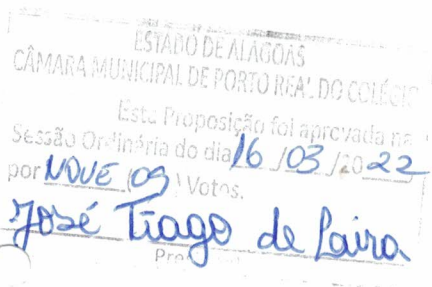 ESTADO DE ALAGOAS
CÂMARA MUNICIPAL DE PORTO REAL DO COLÉGIO
Esta Proposição foi aprovada na
Sessão Ordinária do dia 16 /03 /2022
por NOVE (09) Votos.
José Tiago de